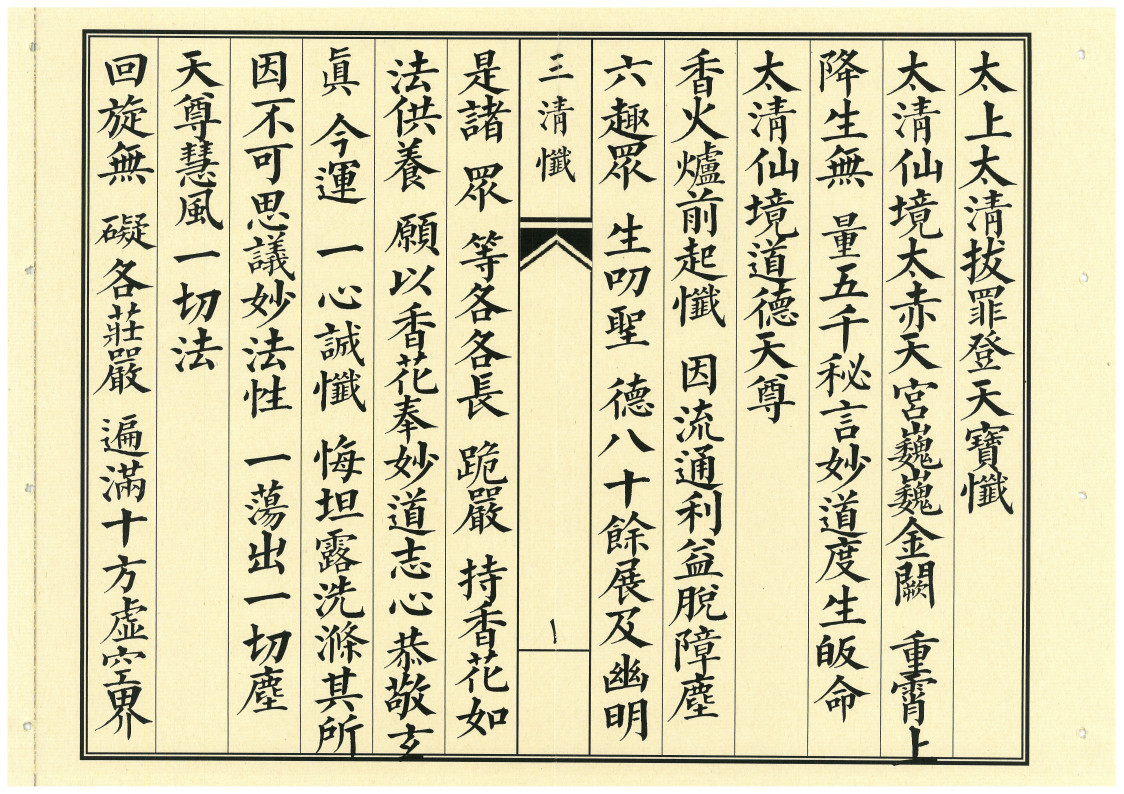 太上太清拔罪登天寶懺
太清仙境太赤天宮巍巍金闕 重霄上
降生無 量五千秘言妙道度生皈命
太清仙境道德天尊
香火爐前起懺 因流通利益脫障塵
六趣眾 生叨聖 德八十餘展及幽明
三清懺 一
是諸 眾 等各各長 跪嚴 持香花如
法供養 願以香花奉妙道志心 恭敬玄
眞 今運 一 心誠懺 悔坦露洗滌其所
因不可思議妙法性 一蕩出一切塵
天尊慧風一切法
回旋無 礙 各莊嚴 遍滿十方虛空界